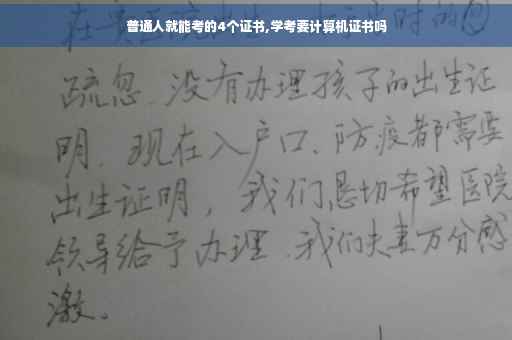 普通人就能考的4个证书,学考要计算机证书吗
时的
疏忽.没有办理孩子的出生证
明.现在入户口、防疫都需要
出生证明,我们恳切希望医院
领导给予办理.我们夫妻万分感
激。